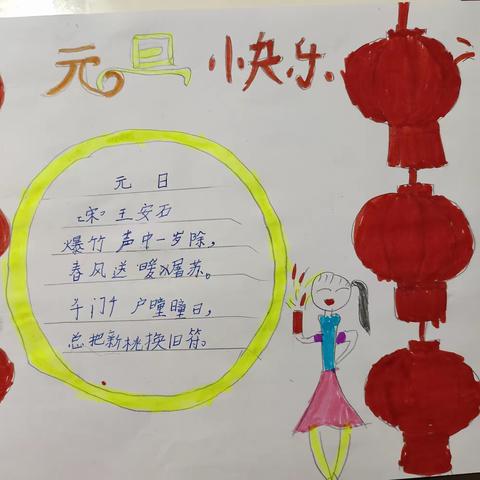 元旦 快乐
元 日
[宋] 王安石
爆竹 声中一岁除,
春风送 暖入屠苏。
千门十 户瞳瞳日,
总把新桃换旧符。